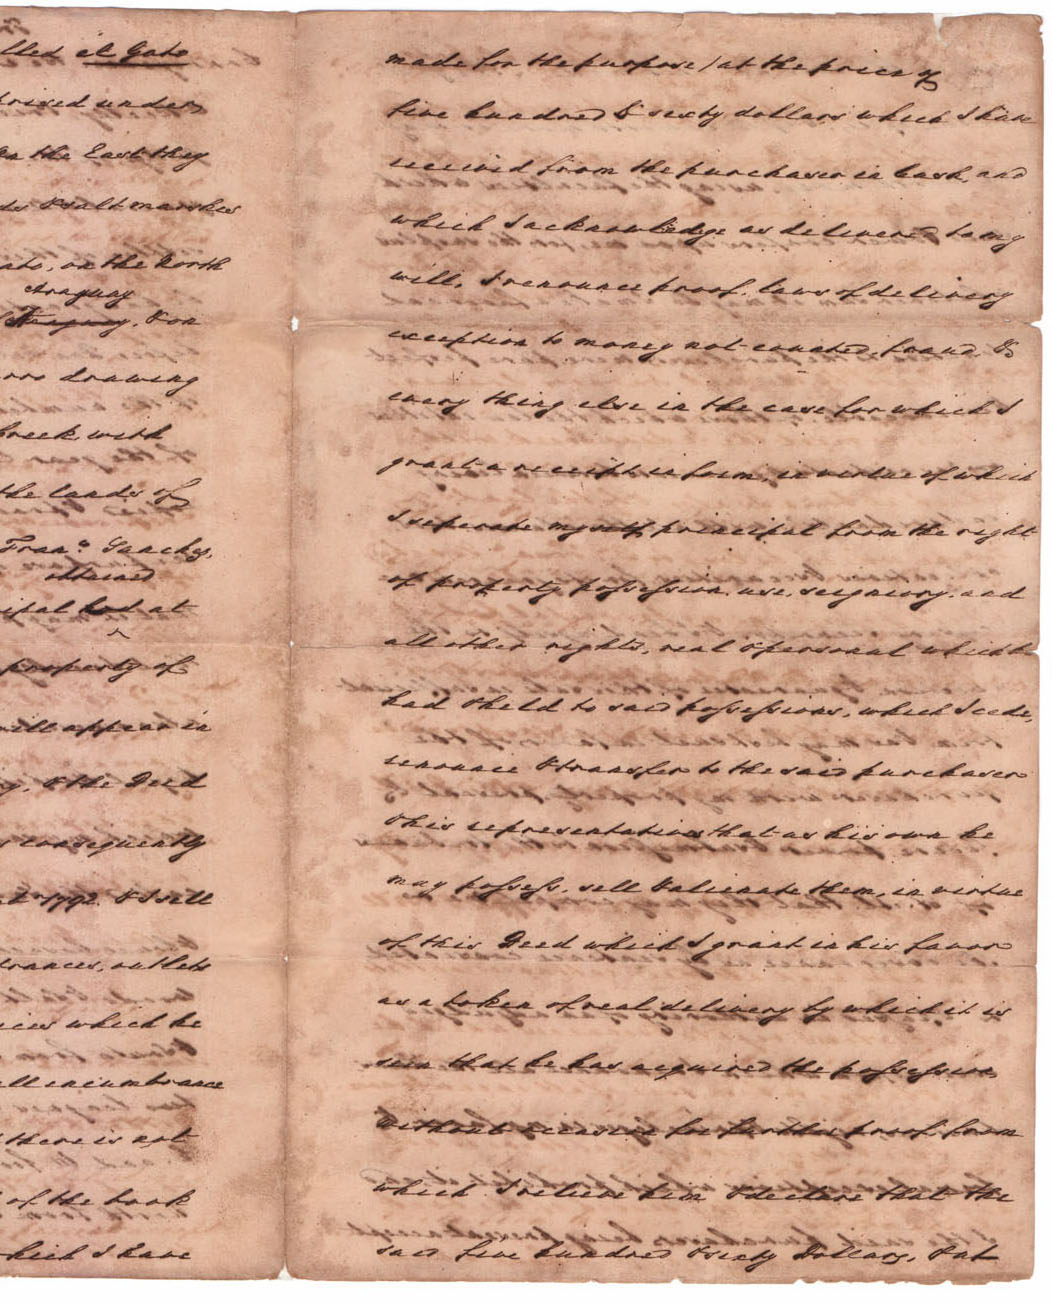 lled el Gato
prised under
On the East they
ds & salt marshes
ato, on the North
Araguay
Araguay, & on
drawing
Creek, with
the lands of
Fran.co Sanchez,
obtained
cipal had at
property of
will appear in
y, & the Deed
s consequently
1792. & I sell
trances, outlets
ices which he
all incumbrance
there is not
of the book
which I have
made for the purpose / at the price of
five hundred & sixty dollars which I have
received from the purchaser in Cash, and
which I acknowledge as delivered to my
will, I renounce proof, laws of delivery
exception to money not counted, fraud, &
every thing else in the case for which I
grant a receipt in form, in virtue of which
I seperate my self, principal from the right
of property, possession, use, seignory, and
all other rights, real & personal which he
had & held to said possessions, which I cede,
renounce & transfer to the said purchaser
& his representatives that as his own he
may possess, sell & alienate them, in virtue
of this Deed which I grant in his favor
as a token of real delivery by which it is
seen that he has acquired the possession,
without occasion for further proof, from
which I relieve him & declare that the
said five hundred & sixty Dollars, & at